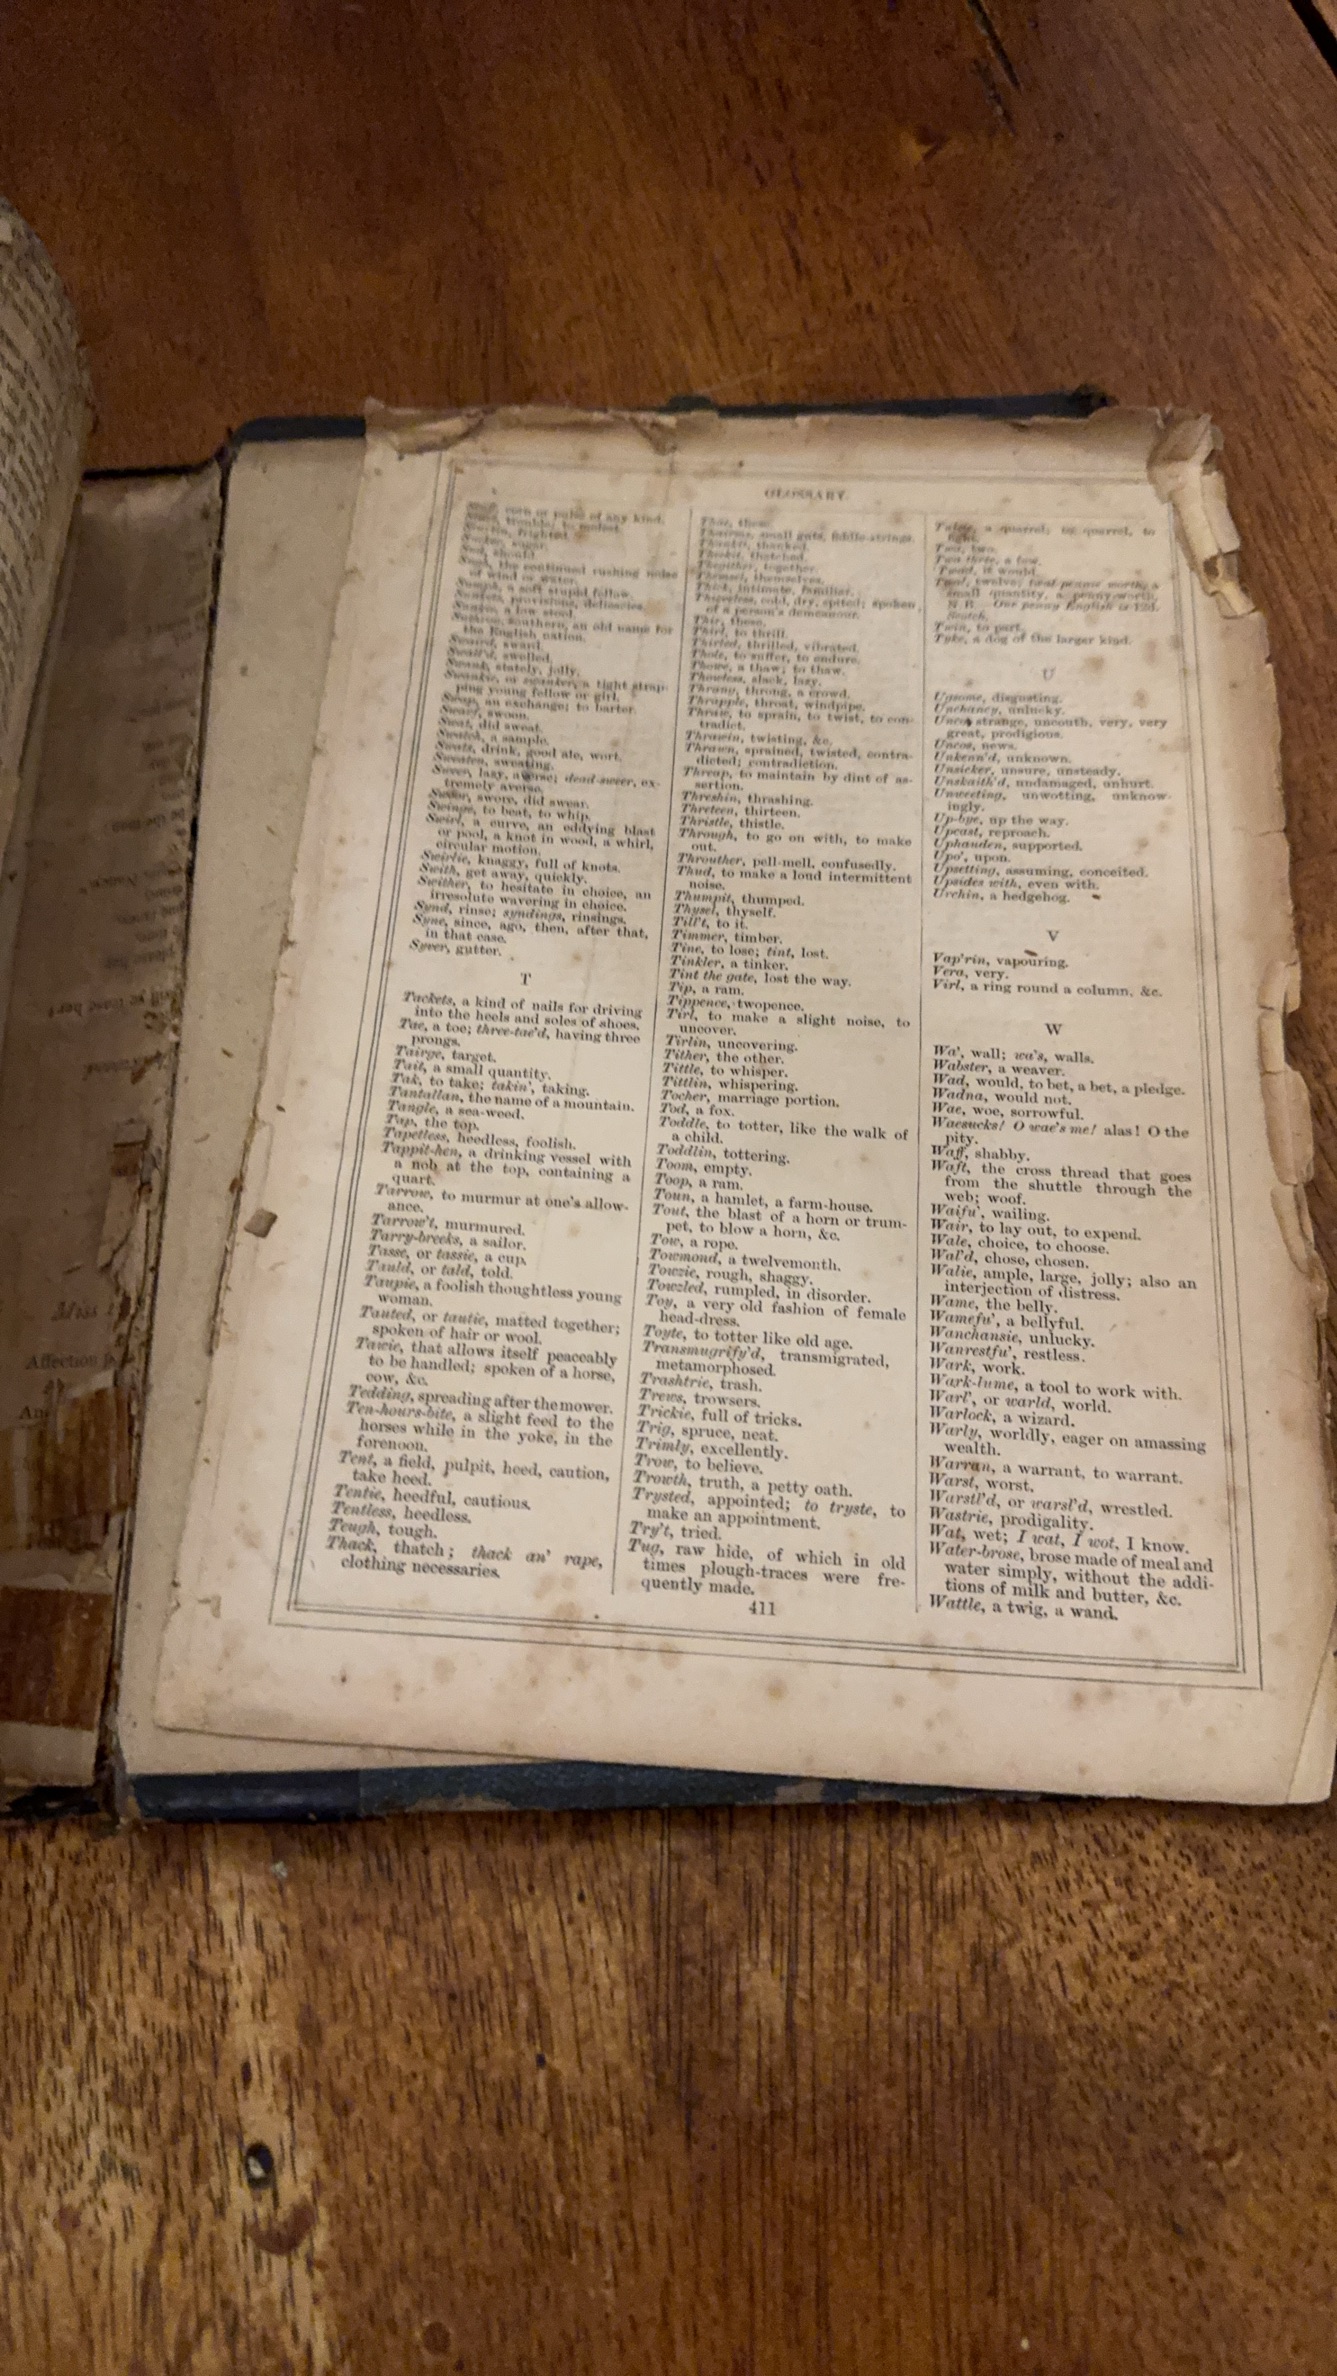 GLOSSARY
corn or pulse of any kind.
trouble; to molest.
frighted.
sugar.
should.
the continued rushing noise
of wind or water.
a soft stupid fellow.
provisions, delicacies.
a low stool.
Southern, an old name for
the English nation.
Swaird, sward.
Swall'd, swelled.
Swank, stately, jolly.
Swankie, or swanker, a tight strap-
ping young fellow or girl.
Swap, an exchange; to barter.
Swarf, swoon.
Swat, did sweat.
Swatch, a sample.
Swats, drink, good ale, wort.
Sweaten, sweating.
Sweer, lazy, averse; dead-sweer, ex-
tremely averse.
Swoor, swore, did swear.
Swinge, to beat, to whip.
Swirl, a curve, an eddying blast
or pool, a knot in wood, a whirl,
circular motion.
Swirlie, knaggy, full of knots.
Swith, get away, quickly.
Swither, to hesitate in choice, an
irresolute wavering in choice.
Synd, rinse; syndings, rinsings.
Syne, since, ago, then, after that,
in that case.
Syver, gutter.
T
Tackets, a kind of nails for driving
into the heels and soles of shoes.
Tae, a toe; three-tae'd, having three
prongs.
Tairge, target.
Tait, a small quantity.
Tak, to take; takin', taking.
Tantallan, the name of a mountain.
Tangle, a sea-weed.
Tap, the top.
Tapetless, heedless, foolish.
Tappit-hen, a drinking vessel with
a nob at the top, containing a
quart.
Tarrow, to murmur at one's allow-
ance.
Tarrow't, murmured.
Tarry-breeks, a sailor.
Tasse, or tassie, a cup.
Tauld, or tald, told.
Taupie, a foolish thoughtless young
woman.
Tauted, or tautie, matted together;
spoken of hair or wool.
Tawie, that allows itself peaceably
to be handled; spoken of a horse,
cow, &c.
Tedding, spreading after the mower.
Ten-hours-bite, a slight feed to the
horses while in the yoke, in the
forenoon.
Tent, a field, pulpit, heed, caution,
take heed.
Tentie, heedful, cautious.
Tentless, heedless.
Teugh, tough.
Thack, thatch; thack an' rape,
clothing necessaries.
Thae, these.
Thairms, small guts, fiddle-strings.
Thankit, thanked.
Theekit, thatched.
Thegither, together.
Themsel, themselves.
Thick, intimate, familiar.
Thieveless, cold, dry, spited; spoken
of a person's demeanour.
Thir, these.
Thirl, to thrill.
Thirled, thrilled, vibrated.
Thole, to suffer, to endure.
Thowe, a thaw; to thaw.
Thowless, slack, lazy.
Thrang, throng, a crowd.
Thrapple, throat, windpipe.
Thraw, to sprain, to twist, to con-
tradict.
Thrawin, twisting, &c.
Thrawn, sprained, twisted, contra-
dicted; contradiction.
Threap, to maintain by dint of as-
sertion.
Threshin, thrashing.
Threteen, thirteen.
Thristle, thistle.
Through, to go on with, to make
out.
Throuther, pell-mell, confusedly.
Thud, to make a loud intermittent
noise.
Thumpit, thumped.
Thysel, thyself.
Till't, to it.
Timmer, timber.
Tine, to lose; tint, lost.
Tinkler, a tinker.
Tint the gate, lost the way.
Tip, a ram.
Tippence, twopence.
Tirl, to make a slight noise, to
uncover.
Tirlin, uncovering.
Tither, the other.
Tittle, to whisper.
Tittlin, whispering.
Tocher, marriage portion.
Tod, a fox.
Toddle, to totter, like the walk of
a child.
Toddlin, tottering.
Toom, empty.
Toop, a ram.
Toun, a hamlet, a farm-house.
Tout, the blast of a horn or trum-
pet, to blow a horn, &c.
Tow, a rope.
Towmond, a twelvemonth.
Towzie, rough, shaggy.
Towzled, rumpled, in disorder.
Toy, a very old fashion of female
head-dress.
Toyte, to totter like old age.
Transmugrify'd, transmigrated,
metamorphosed.
Trashtrie, trash.
Trews, trowsers.
Trickie, full of tricks.
Trig, spruce, neat.
Trimly, excellently.
Trow, to believe.
Trowth, truth, a petty oath.
Trysted, appointed; to tryste, to
make an appointment.
Try't, tried.
Tug, raw hide, of which in old
times plough-traces were fre-
quently made.
a quarrel; to quarrel, to
fight.
Twa, two.
Twa three, a few.
Twad, it would.
Twal, twelve; twal pennie worth, a
small quantity, a penny-worth.
N.B. One penny English is 12d.
Scotch.
Twin, to part.
Tyke, a dog of the larger kind.
U
Ugsome, disgusting.
Unchancy, unlucky.
Unco, strange, uncouth, very, very
great, prodigious.
Uncos, news.
Unkenn'd, unknown.
Unsicker, unsure, unsteady.
Unskaith'd, undamaged, unhurt.
Unweeting, unwotting, unknow-
ingly.
Up-bye, up the way.
Upcast, reproach.
Uphauden, supported.
Upo', upon.
Upsetting, assuming, conceited.
Upsides with, even with.
Urchin, a hedgehog.
V
Vap'rin, vapouring.
Vera, very.
Virl, a ring round a column, &c.
W
Wa', wall; wa's, walls.
Wabster, a weaver.
Wad, would, to bet, a bet, a pledge.
Wadna, would not.
Wae, woe, sorrowful.
Waesucks! O wae's me! alas! O the
pity.
Waff, shabby.
Waft, the cross thread that goes
from the shuttle through the
web; woof.
Waifu', wailing.
Wair, to lay out, to expend.
Wale, choice, to choose.
Wal'd, chose, chosen.
Walie, ample, large, jolly; also an
interjection of distress.
Wame, the belly.
Wamefu', a bellyful.
Wanchansie, unlucky.
Wanrestfu', restless.
Wark, work.
Wark-lume, a tool to work with.
Warl', or warld, world.
Warlock, a wizard.
Warly, worldly, eager on amassing
wealth.
Warran, a warrant, to warrant.
Warst, worst.
Warstl'd, or warsl'd, wrestled.
Wastrie, prodigality.
Wat, wet; I wat, I wot, I know.
Water-brose, brose made of meal and
water simply, without the addi-
tions of milk and butter, &c.
Wattle, a twig, a wand.
411
Affection